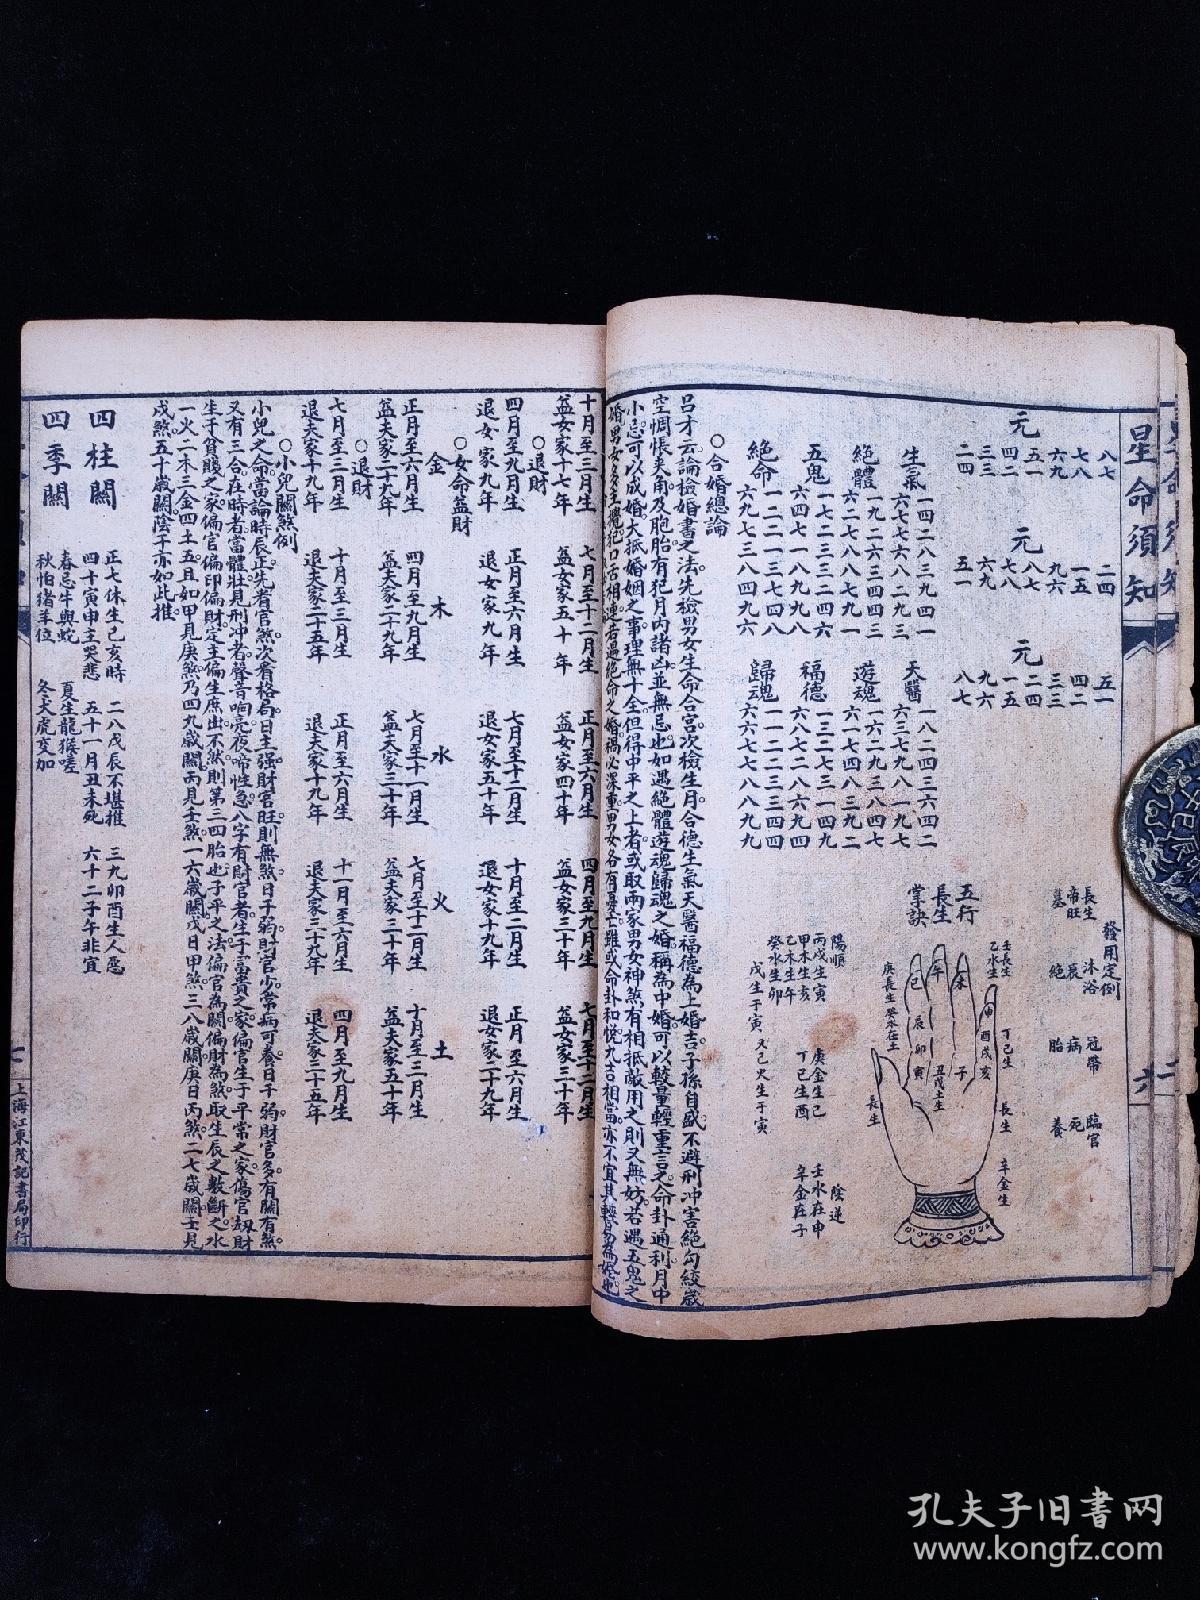 星命須知
八七 二四 五一
七八 一五 四二
六九 九六 三三
元 元 元
五一 八七 二四
四二 七八 一五
三三 六九 九六
二四 五一 八七
生氣 一四 二八 三九 四一 六七 七六 八二 九三
天醫 一八 二四 三六 四二 六三 七九 八一 九七
絕體 一九 二六 三四 四三 六二 七八 八七 九一
遊魂 一六 二九 三八 四七 六一 七四 八三 九二
五鬼 一七 二三 三二 四六 六四 七一 八九 九八
福德 一三 二七 三一 四九 六八 七二 八六 九四
絕命 一二 二一 三七 四八 六九 七三 八四 九六
歸魂 一一 二二 三三 四四 六六 七七 八八 九九
發用定例
長生 沐浴 冠帶 臨官
帝旺 衰 病 死
墓 絕 胎 養
五行
長生
掌訣
陽順
丙戊生寅 庚金生巳 壬水在申
甲木生亥 丁己生酉 辛金在子
乙木生午
癸水生卯
陰逆
戊生于寅 又己火生于寅
○合婚總論
呂才云論檢婚書之法先檢男女生命合宮次檢生月合德生氣天醫福德為上婚吉子孫自盛不避刑冲害絕勾絞歲
空惆悵夹角及胞胎有犯月内諸凶並無忌也如遇絕體遊魂歸魂之婚稱為中婚可以較量輕重言之命卦通利月中
小忌可以成婚大抵婚姻之事理無十全但得中平之上者或取兩家男女神煞有相抵敵用之則又無妨若遇五鬼之
十月至三月生 七月至十二月生 正月至六月生 四月至九月生 七月至十二月生
益女家十七年 益女家五十年 益女家四十年 益女家三十年 益女家三十年
○退財
四月至九月生 正月至六月生 七月至十二月生 十月至三月生 正月至六月生
退女家九年 退女家九年 退女家五十年 退女家十九年 退女家二十九年
○女命益財
金 木 水 火 土
正月至六月生 四月至九月生 七月至十一月生 七月至十二月生 十月至三月生
益夫家二十九年 益夫家二十九年 益夫家三十年 益夫家三十年 益夫家五十年
○退財
七月至三月生 十月至三月生 正月至六月生 十一月至六月生 四月至九月生
退夫家十九年 退夫家二十五年 退夫家十九年 退夫家三十九年 退夫家三十五年
○小兒關煞例
小兒之命當論時辰正先看官煞次看格局日主强財官旺則無煞日干弱財官少常病可養日干弱財官多有關有煞
又有三合在時者當體壯見刑冲者聲音响亮夜啼性急八字有財官者生于富貴之家偏官生于平常之家傷官刼財
生于貧賤之家偏官偏印偏財定主偏生庶出不然則第三四胎也子平之法偏官為關偏財為煞取生辰之數斷之水
一火二木三金四土五且如甲見庚煞乃四九歲關丙見壬煞一六歲關戊日甲煞三八歲關庚日丙煞二七歲關壬見
戊煞五十歲關陰干亦如此推
四柱關 正七休生己亥時 二八戊辰不堪推 三九卯酉生人惡
四十寅申主哭悲 五十一月丑未死 六十二子午非宜
四季關 春忌牛與蛇 夏生龍猴嗟
秋怕猪羊位 冬犬虎更加
七 上海江東茂記書局印行
孔夫子旧書网
www.kongfz.com